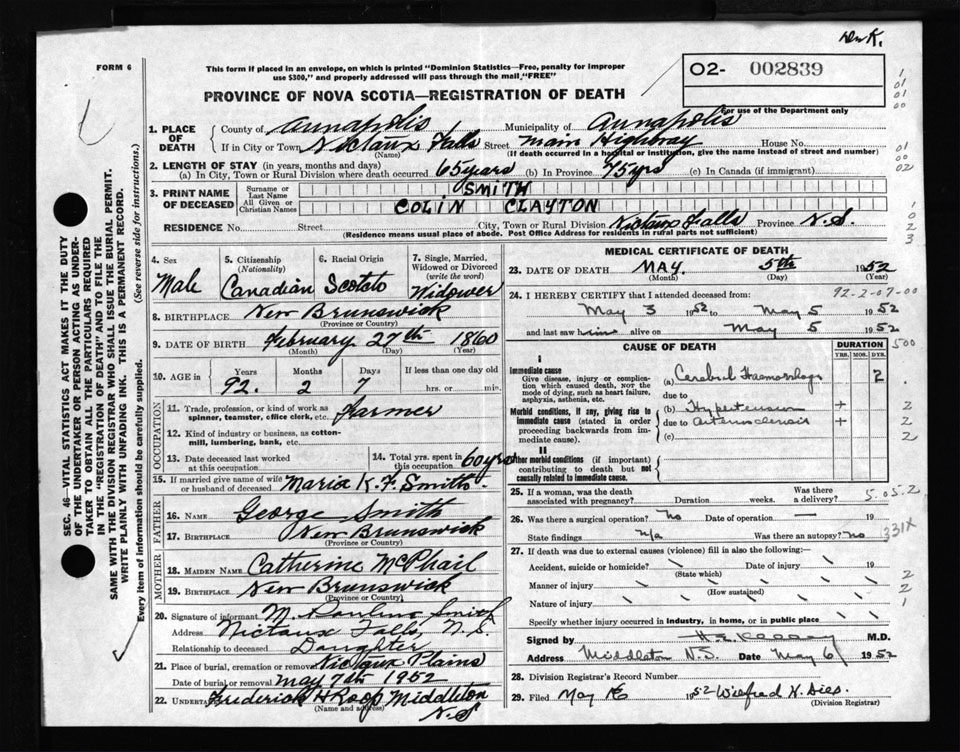 FORM 6
This form if placed in an envelope, on which is printed "Dominion Statistics—Free, penalty for improper
use $300," and properly addressed will pass through the mail "FREE"
O2- 002839
For use of the Department only
PROVINCE OF NOVA SCOTIA—REGISTRATION OF DEATH
1. PLACE OF DEATH County of Annapolis Municipality of Annapolis
If in City or Town Nictaux Falls Street Main Highway House No.
(Name) (If death occurred in a hospital or institution, give the name instead of street and number)
2. LENGTH OF STAY (in years, months and days)
(a) In City, Town or Rural Division where death occurred 65 years (b) In Province 75 yrs (c) In Canada (if immigrant)
3. PRINT NAME OF DECEASED Surname or Last Name SMITH
All Given or Christian Names COLIN CLAYTON
RESIDENCE No. Street City, Town or Rural Division Nictaux Falls Province N.S.
(Residence means usual place of abode. Post Office Address for residents in rural parts not sufficient)
4. Sex Male
5. Citizenship (Nationality) Canadian
6. Racial Origin
7. Single, Married, Widowed or Divorced (write the word) Widower
8. BIRTHPLACE New Brunswick
(Province or Country)
9. DATE OF BIRTH February 27th 1860
(Month) (Day) (Year)
10. AGE in Years Months Days If less than one day old
92. 2 7 hrs. or min.
OCCUPATION
11. Trade, profession, or kind of work as spinner, teamster, office clerk, etc. farmer
12. Kind of industry or business, as cotton-mill, lumbering, bank, etc.
13. Date deceased last worked at this occupation
14. Total yrs. spent in this occupation 60 yrs
15. If married give name of wife or husband of deceased Maria K. F. Smith.
FATHER
16. NAME George Smith
17. BIRTHPLACE New Brunswick
(Province or Country)
MOTHER
18. MAIDEN NAME Catherine McPhail
19. BIRTHPLACE New Brunswick
(Province or Country)
20. Signature of informant M. Pauline Smith
Address Nictaux Falls, N.S.
Relationship to deceased Daughter
21. Place of burial, cremation or removal Nictaux Plains
Date of burial or removal May 7th 1952
22. UNDERTAKER Frederick H Roop Middleton
(Name and address) N.S
MEDICAL CERTIFICATE OF DEATH
23. DATE OF DEATH MAY 5th 1952
(Month) (Day) (Year)
24. I HEREBY CERTIFY that I attended deceased from: 92-2-07-00
May 3 1952 to May 5 1952
and last saw him alive on May 5 1952
CAUSE OF DEATH DURATION
YRS. MOS. DYS.
I
Immediate cause
Give disease, injury or complication which caused death, NOT the mode of dying, such as heart failure, asphyxia, asthenia, etc.
(a) Cerebral Haemorrhage 2
due to
Morbid conditions, if any, giving rise to immediate cause (stated in order proceeding backwards from immediate cause).
(b) Hypertension +
due to arteriosclerosis +
(c)
II
Other morbid conditions (if important) contributing to death but not causally related to immediate cause.
25. If a woman, was the death associated with pregnancy? Duration weeks. Was there a delivery?
5.05.2
26. Was there a surgical operation? No Date of operation — 19
State findings n/a Was there an autopsy? no
331X
27. If death was due to external causes (violence) fill in also the following:—
Accident, suicide or homicide? Date of injury 19
(State which)
Manner of injury
(How sustained)
Nature of injury
Specify whether injury occurred in industry, in home, or in public place
Signed by M.D.
Address Middleton N.S. Date May 6 1952
28. Division Registrar's Record Number
29. Filed May 16 1952 Wilfred
(Division Registrar)
SEC. 46 VITAL STATISTICS ACT MAKES IT THE DUTY
OF THE UNDERTAKER OR PERSON ACTING AS UNDERTAKER TO OBTAIN ALL THE PARTICULARS REQUIRED
IN THE "REGISTRATION OF DEATH" AND TO FILE THE
SAME WITH THE DIVISION REGISTRAR WHO SHALL ISSUE THE BURIAL PERMIT.
WRITE PLAINLY WITH UNFADING INK. THIS IS A PERMANENT RECORD.
Every item of information should be carefully supplied. (See reverse side for instructions.)